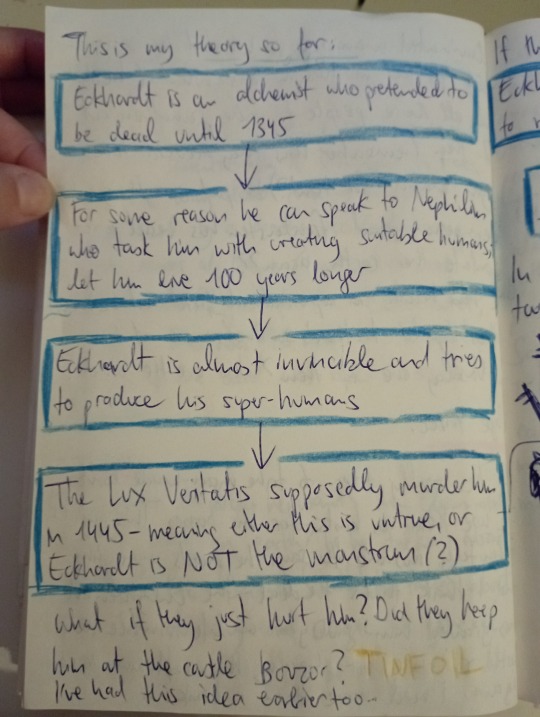 This is my theory so far:
Eckhardt is an alchemist who pretended to
be dead until 1345
For some reason he can speak to Nephilim
who task him with creating suitable humans,
let him live 100 years longer
Eckhardt is almost invincible and tries
to produce his super-humans
The Lux Veritatis supposedly murder him
in 1445 - meaning either this is untrue, or
Eckhardt is NOT the monstrum (?)
What if they just hurt him? Did they keep
him at the castle Bovzor? TINFOIL
I've had this idea earlier too...
If th
Eckh
to
In